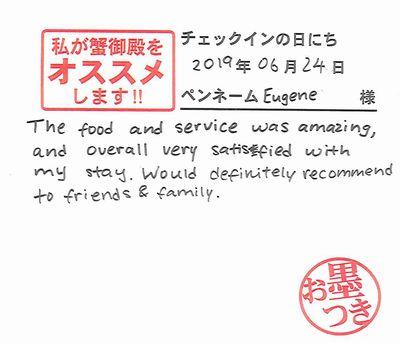 私が蟹御殿を
オススメ
します!!
チェックインの日にち
2019年 06月 24日
ペンネーム Eugene 様
The food and service was amazing,
and overall very satisfied with
my stay. Would definitely recommend
to friends & family.
お墨
つき